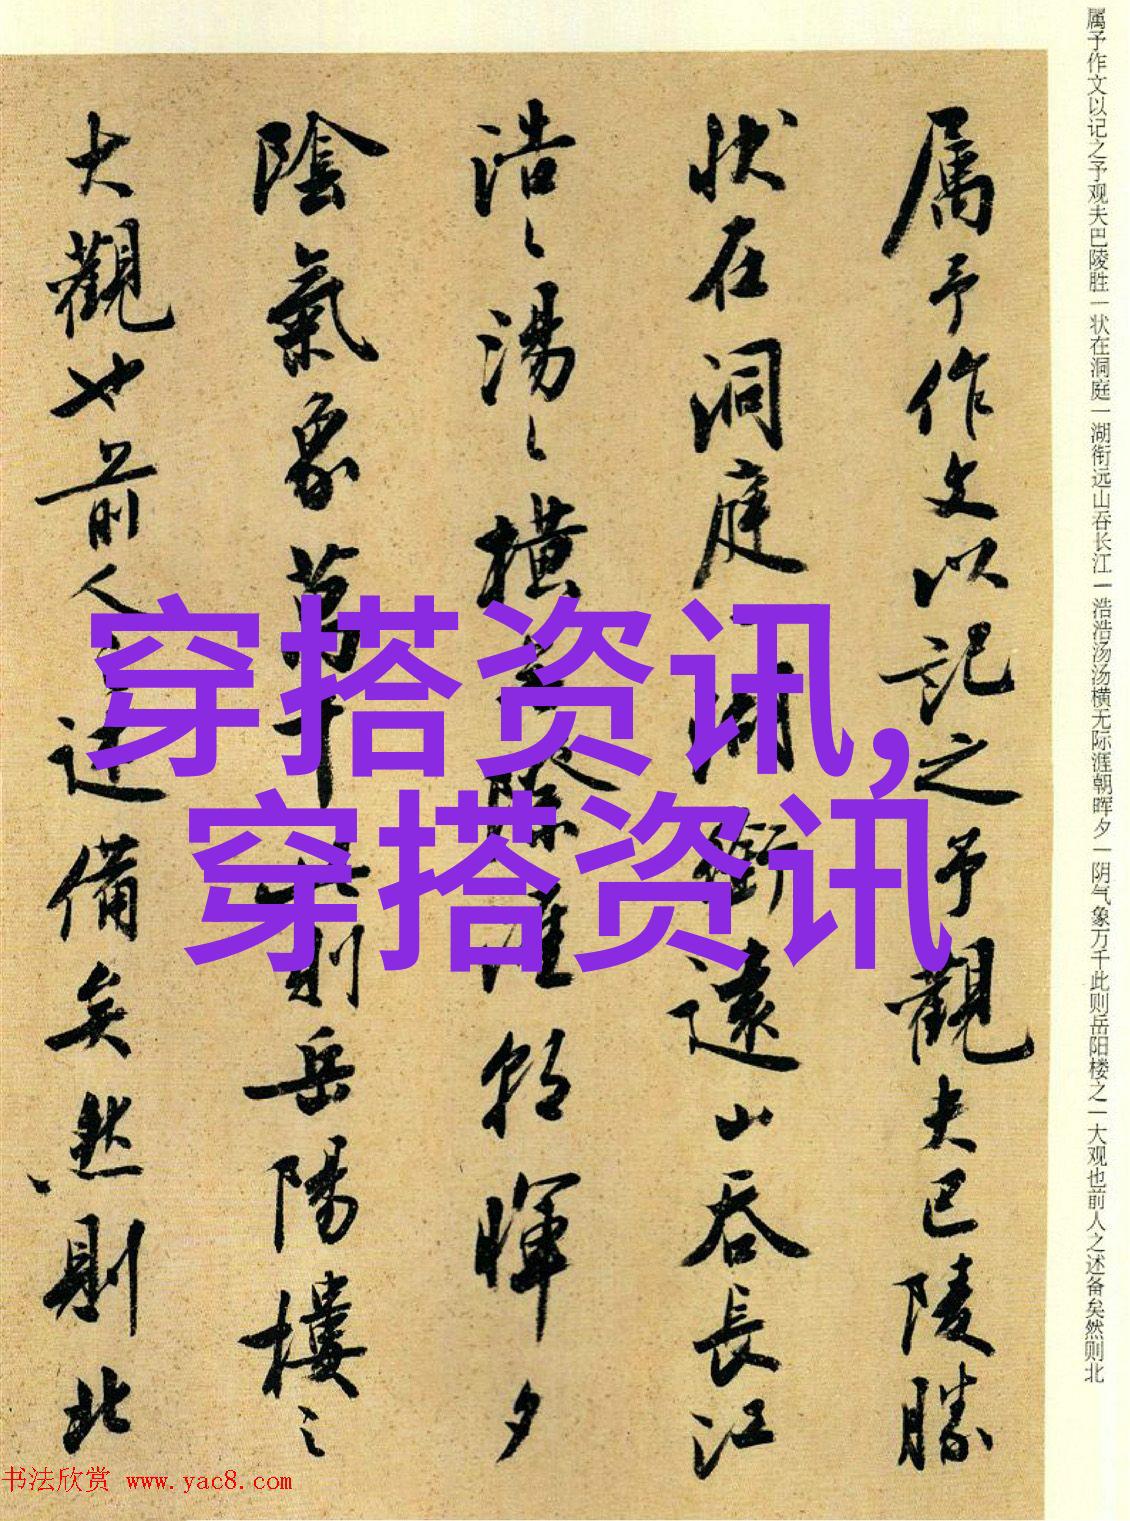 属予作文以记之予观夫巴陵胜一状在洞庭一湖衔远山吞长江一浩浩汤汤横无际涯朝晖夕一阴气象万千此则岳阳楼之一大观也前人之述备矣然则北
属予作文以記之予觀夫巴陵勝
状在洞庭一湖銜遠山吞長江
浩〻湯〻横無際涯朝暉夕
陰氣象萬千此則岳陽樓之
大觀也前人之述備矣然則北
穿搭资讯,
穿搭资讯
书法欣赏 www.yac8.com